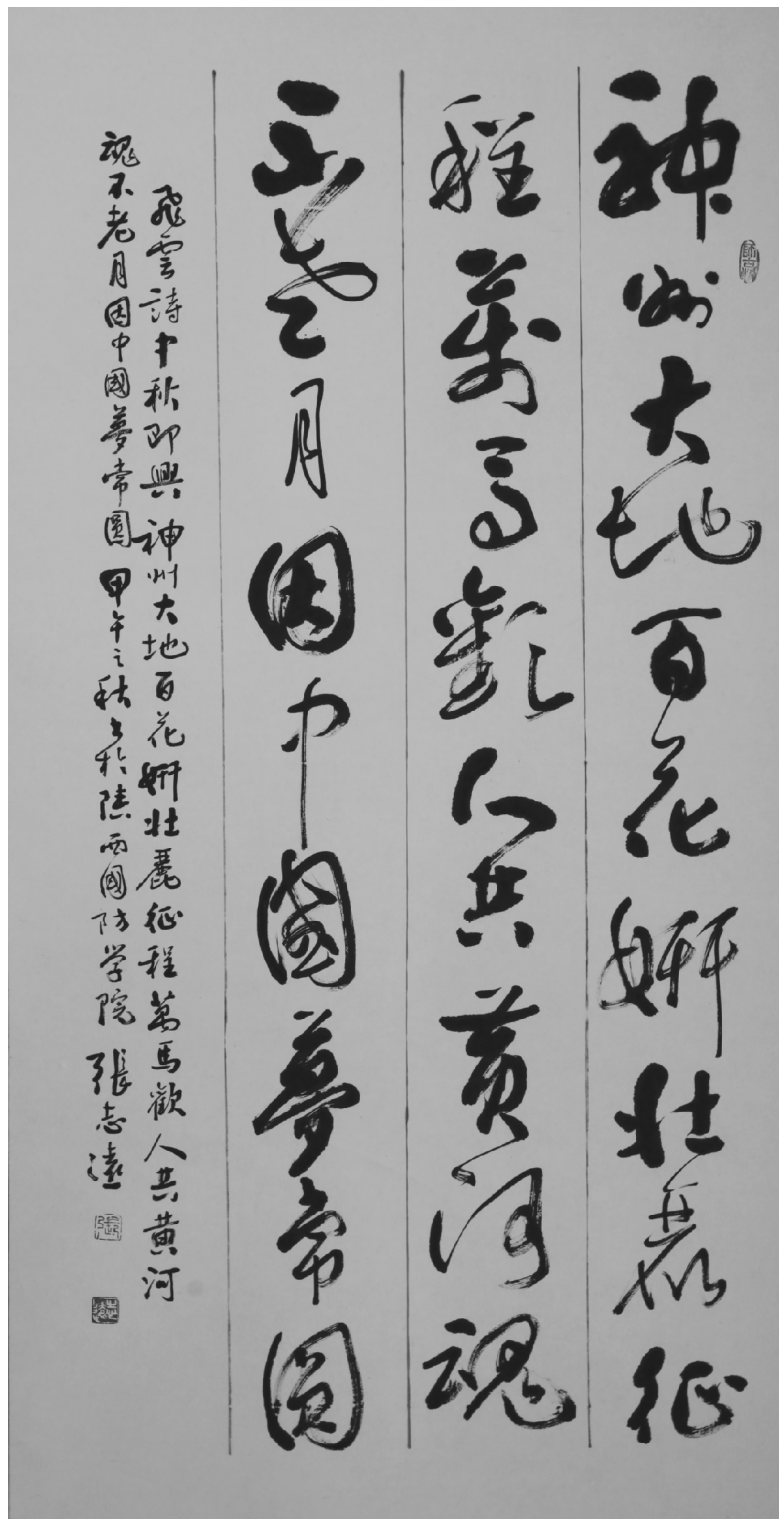 神州大地百花妍壯麗征
程萬馬歡人共黃河魂
不老月因中國夢常圓
飛雲詩中秋即興神州大地百花妍壯麗征程萬馬歡人共黃河
魂不老月因中國夢常圓甲午之秋書於陝西國防学院張志遠